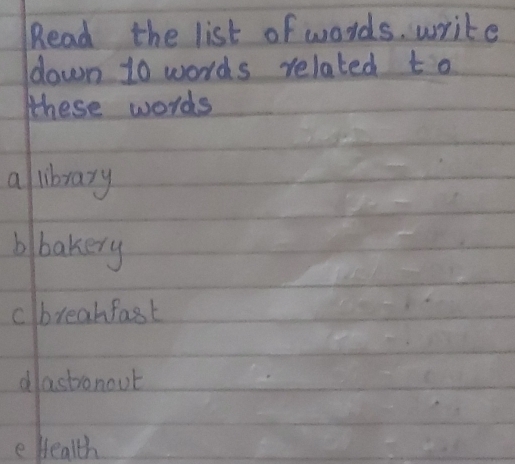 Read the list of words. write
down 10 words related to
these words
a library
b bakery
c breakfast
d astronout
e Health